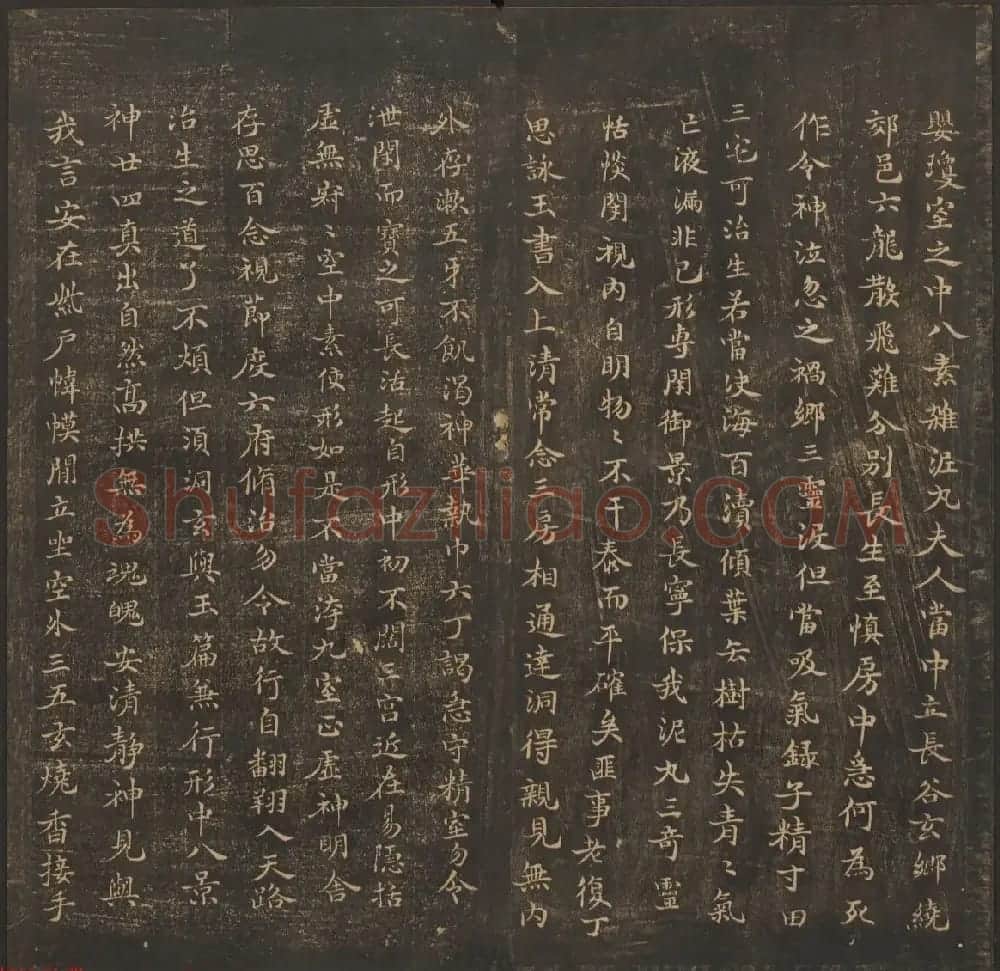 嬰瓊室之中八素雜泥丸夫人當中立長谷玄鄉繞
郊邑六龍散飛難分別長生至慎房中急何為死
作令神泣忽之禍鄉三靈歿但當吸氣錄子精寸田
三宅可治生若當決海百瀆傾葉去樹枯失青〻氣
亡液漏非己形專閉御景乃長寧保我泥丸三奇靈
恬惔閉視內自明物〻不干泰而平確矣匪事老復丁
思詠玉書入上清常念三房相通達洞得親見無內
外存漱五牙不飢渴神華執巾六丁謁急守精室勿令
泄閉而寶之可長活起自形中初不闊三宮近在易隱括
虛無寂〻空中素使形如是不當汙九室正虛神明舍
存思百念視節度六府脩治勿令故行自翱翔入天路
治生之道了不煩但須洞玄與玉篇兼行形中八景
神廿四真出自然高拱無為魂魄安清靜神見與
我言安在紫戶幃幙間立坐室外三五玄燒香接手
Shufaziliao.COM